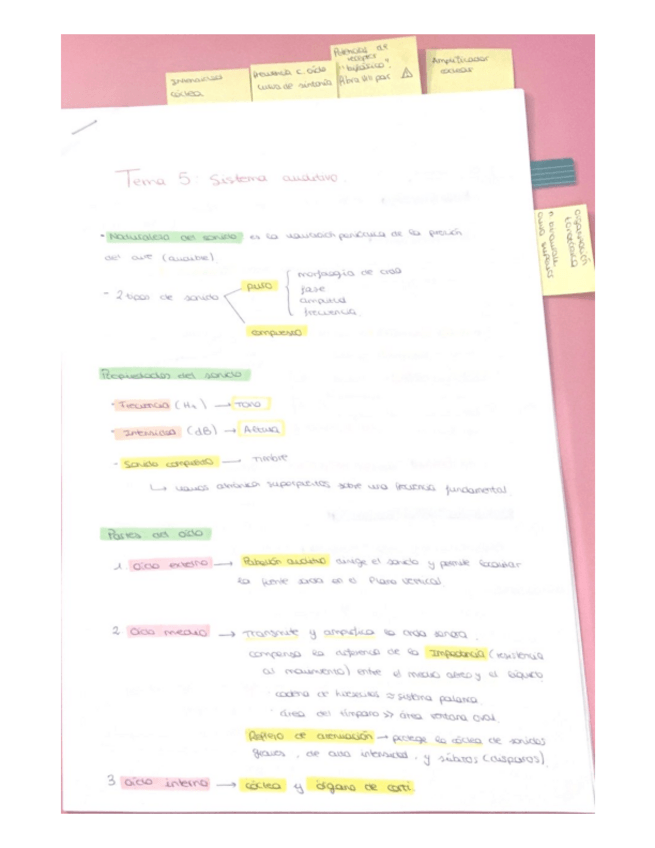 Inervación
cóclea
frecuencia c. oído
curva de sintonía
Potencial de
receptor
"bifásico".
Fibra VIII par
Amplificador
coclear
organización
tonotópica
Tema 5: Sistema auditivo.
- Naturaleza del sonido es la variación periódica de la presión
del aire (audible)
- 2 tipos de sonido
puro
morfología de onda
fase
amplitud
frecuencia.
compuesto
Propiedades del sonido
- Frecuencia (Hz) → Tono
- Intensidad (dB) → Altura
- Sonido complejo — Timbre
↳ varios armónicos superpuestos sobre una frecuencia fundamental
Partes del oído
1. Oído externo → Pabellón auditivo dirige el sonido y permite localizar
la fuente sonora en el Plano vertical
2. Oído medio → Transmite y amplifica la onda sonora.
compensa la diferencia de la Impedancia (resistencia
al movimiento) entre el medio aéreo y el líquido
· cadena de huesecillos = sistema palanca
· área del tímpano >> área ventana oval.
Reflejo de atenuación → protege la cóclea de sonidos
graves, de alta intensidad, y súbitos (disparos).
3 Oído interno → cóclea y órgano de corti.